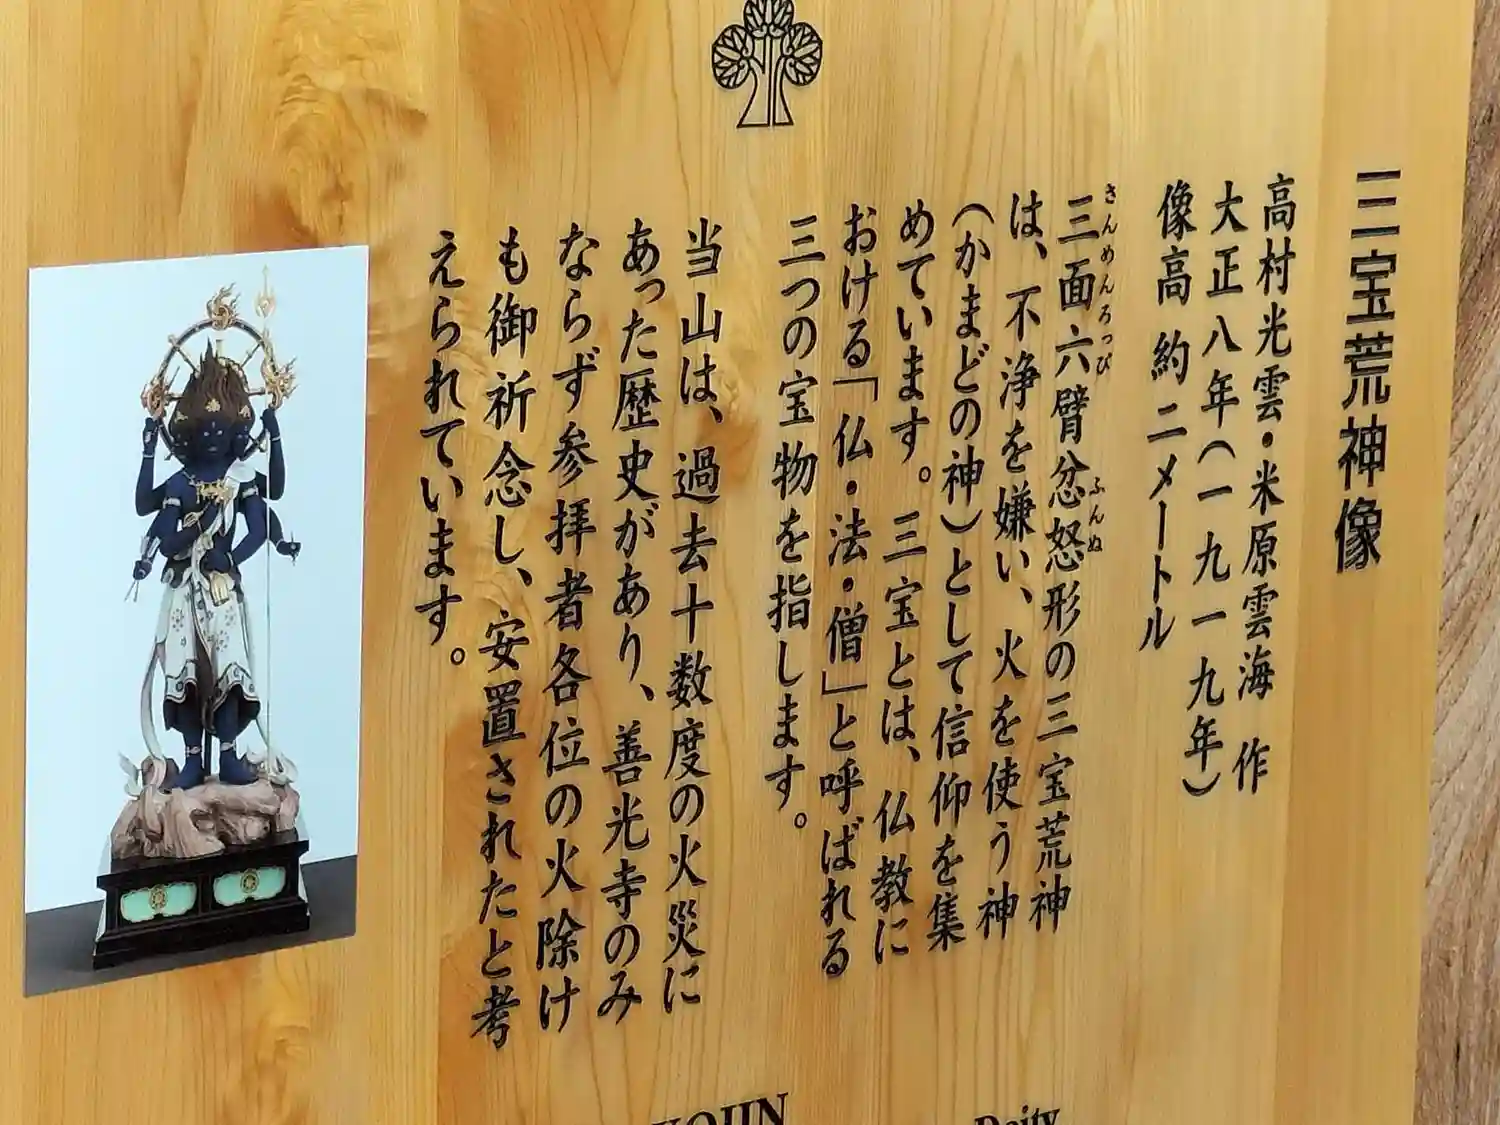 三宝荒神像
高村光雲・米原雲海 作
大正八年（一九一九年）
像高 約二メートル
さんめんろっぴ ふんぬ
三面六臂忿怒形の三宝荒神
は、不浄を嫌い、火を使う神
（かまどの神）として信仰を集
めています。三宝とは、仏教に
おける「仏・法・僧」と呼ばれる
三つの宝物を指します。
当山は、過去十数度の火災に
あった歴史があり、善光寺のみ
ならず参拝者各位の火除け
も御祈念し、安置されたと考
えられています。
KOJIN
Deity